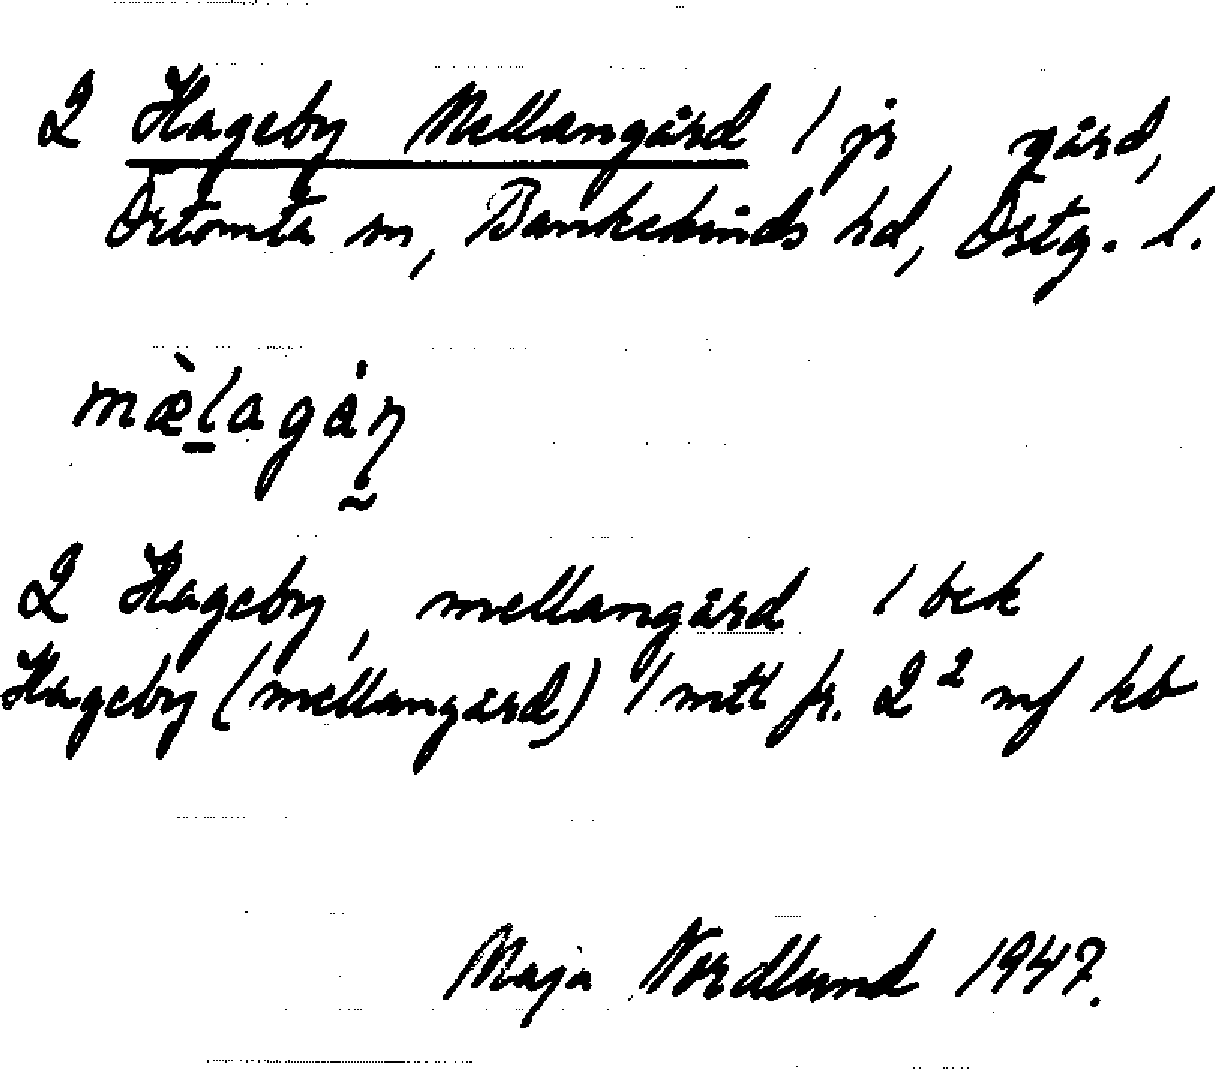 2 Hageby Mellangård / js gård,
Östomta sn, Bankekinds hd, Östg. l.
mæ̀lagåṇ
2 Hageby, mellangård / bek
Hageby (mellangård) 1/1 mtl fr. 2² mf kb
Maja Nordlund 1947.